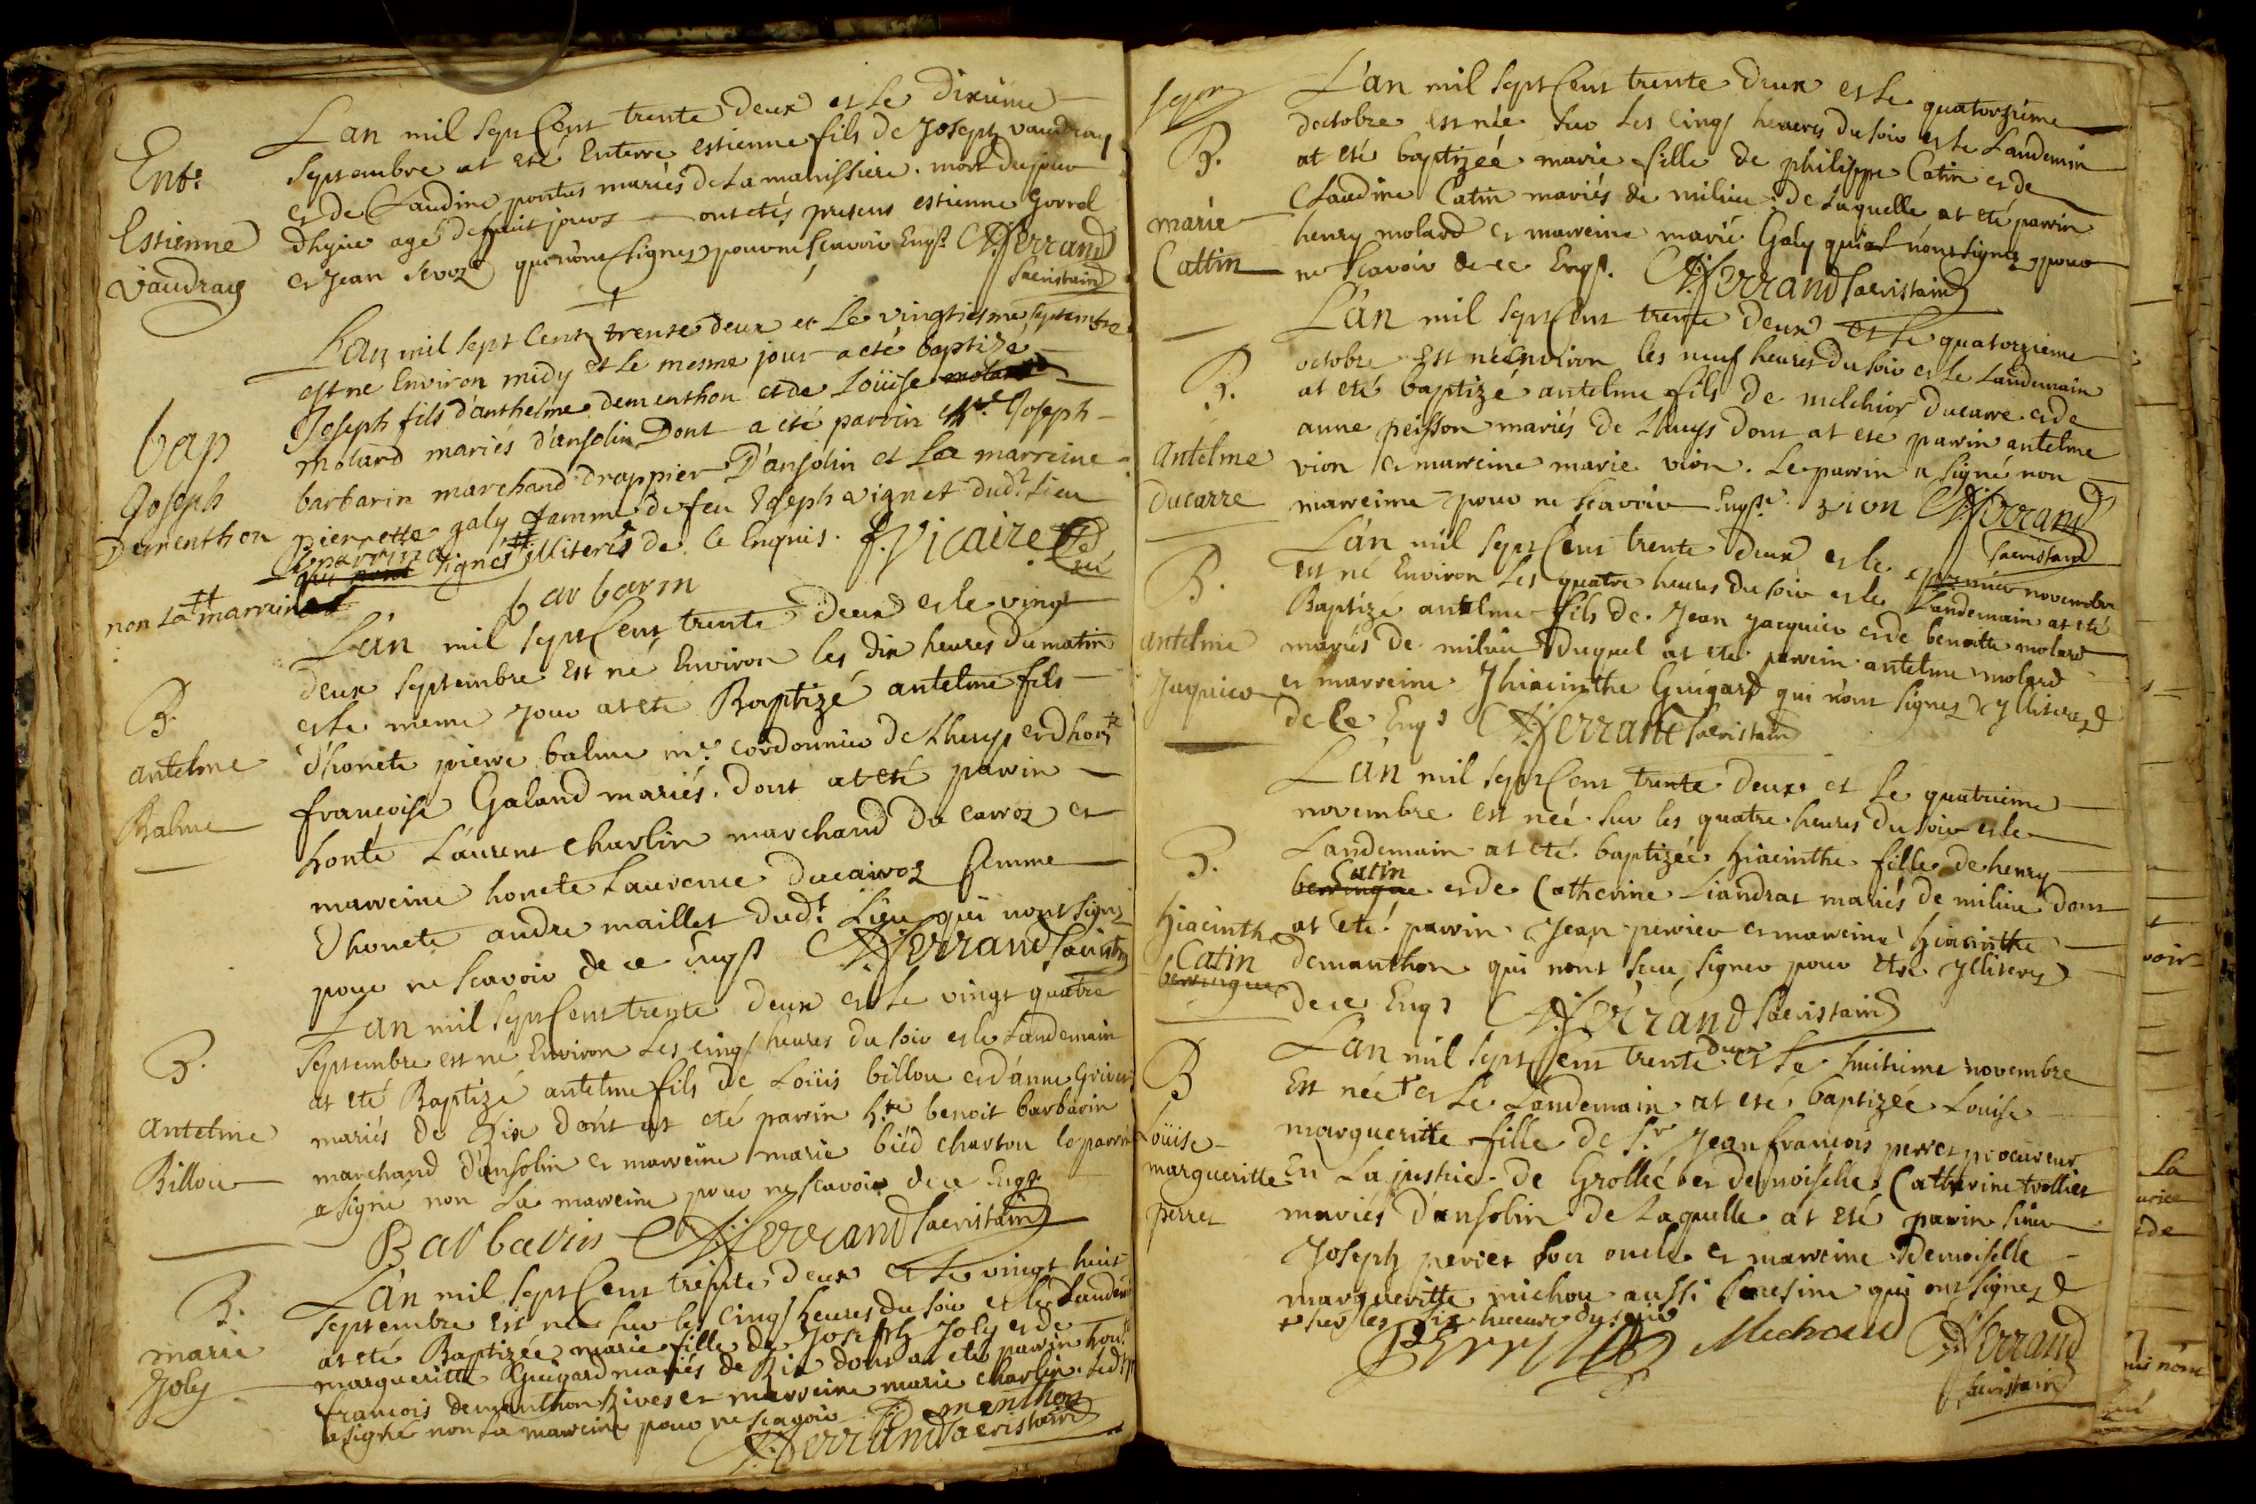 Ent.
Estienne
Vaudray
Lan mil sept Cent trente deux et le dixieme
septembre at eté Enterré estienne fils de Joseph vaudray
et de Claudine pontus mariés de la manissiere. mort du jour
dhyier agé de huit jours ont etés presens estienne Gorrel
et Jean qui nont signes pour ne scavoir Enqs. Ferrand
Sacristain
bap
Joseph
Dementhon
non la marrine
Lan mil sept Cent trente deux et Le vingtiesme septembre
est ne Environ midy et le mesme jour a eté baptizé
Joseph fils d'anthelme dementhon et de Loüise
molard mariés d'ansolin Dont a été parrin Joseph
barbarin marchand drappier D'ansolin et La marreine
pierrette galy famme de feu Joseph vignet dudt. Lieu
Le parrin a signes illiterés de ce Enquis. f. Vicaire
barbarin
B.
antelme
Balme
L'an mil sept Cent trente deux et le vingt
deux septembre Est né Environ les dix heures du matin
et le meme jour at eté Baptizé antelme fils
d'honete pierre balme me. cordonnier de Lhuys et dhonte
francoise Galand mariés. dont at eté parrin
honte Laurent Charlin marchand du carroz et
marreine honete Laurence ducarroz femme
d'honete andre maillet dudt. Lieu qui nont signé
pour ne scavoir de ce Enqs Ferrand Sacristn
B.
antelme
Billou
Lan mil sept Cent trente deux et le vingt quatre
septembre est né Environ Les cinq heures du soir et le Landemain
at eté Baptizé antelme fils de Loüis billou et d'anne
mariés de Rix dont at eté parrin hte benoit barbarin
marchand d'ansolin et marreine marie biéd charton le parrin
a signé non La marreine pour ne scavoir de ce Enqs
Barbarin Ferrand Sacristain
B.
marie
Joly
L'an mil sept Cent trente deux et le vingt huit
septembre est née sur les cinq heures du soir et le Landem
at eté Baptizée marie fille de Joseph Joly et de
margueritte Guigard mariés de Rix dont at eté parrin hont
francois dementhon Rives et marreine marie charlin. Led
a signé non La marreine pour ne scavoir Dementhon
Ferrand Sacristain
B.
marie
Cattin
L'an mil sept Cent trente deux et le quatorzieme
doctobre est née sur Les cinq heures du soir et le Landemin
at eté baptizeé marie fille de philippe Catin et de
Claudine Catin mariés de milieu. de Laquelle at eté parrin
henry molard et marreine marie Galy qui nont signez pour
ne scavoir de ce Enqs. Ferrand Sacristain
B.
antelme
Ducarre
L'an mil sept Cent trente deux et le quatorzieme
octobre Est né Environ les neuf heures du soir et le Landemain
at eté baptizé antelme fils de melchior Ducarre et de
anne peisson mariés de Lhuys dont at eté parrin antelme
vion et marreine marie vion. Le parrin a signé non
marreine pour ne scavoir Enqse. vion Ferrand
Sacristain
B.
antelme
Jaquier
L'an mil sept Cent trente deux et le premier novembre
est né Environ Les quatre heures du soir et le Landemain at eté
Baptizé antelme fils de Jean jacquier et de benoitte molard
mariés de milieu Duquel at eté parrein antelme molard
et marreine Jhiacinthe Guigard qui n'ont signez ylliterez
de Ce Enqs Ferrand Sacristain
B.
Hiacinth
Catin
beringue
L'an mil sept Cent trente deux et Le quatrieme
novembre est née sur les quatre heures du soir et le
Landemain at eté baptizée hiacinthe fille de henry
Catin
beringue et de Catherine Liandrat mariés de milieu dont
at eté parrin Jean perrier et marreine hiacinthe
demanthon qui nont sceu signer pour etre ylliterez
de ce Enqs Ferrand Sacristain
B
Loüise
margueritte
perret
L'an mil sept Cent trente deux et Le huitieme novembre
Est née + et Le Landemain at eté baptizée Louise
margueritte fille de Sr. Jean francois perret procureur
En La justice de Grolleé et demoiselle Catherine trollies
mariés d'ansolin de Laquelle at eté parrin sieur
Joseph perret son oncle et marreine demoiselle
margueritte michou aussi Cousine qui ont signes
+ sur les six heures du soir
Perret Michoud Ferrand
Sacristain